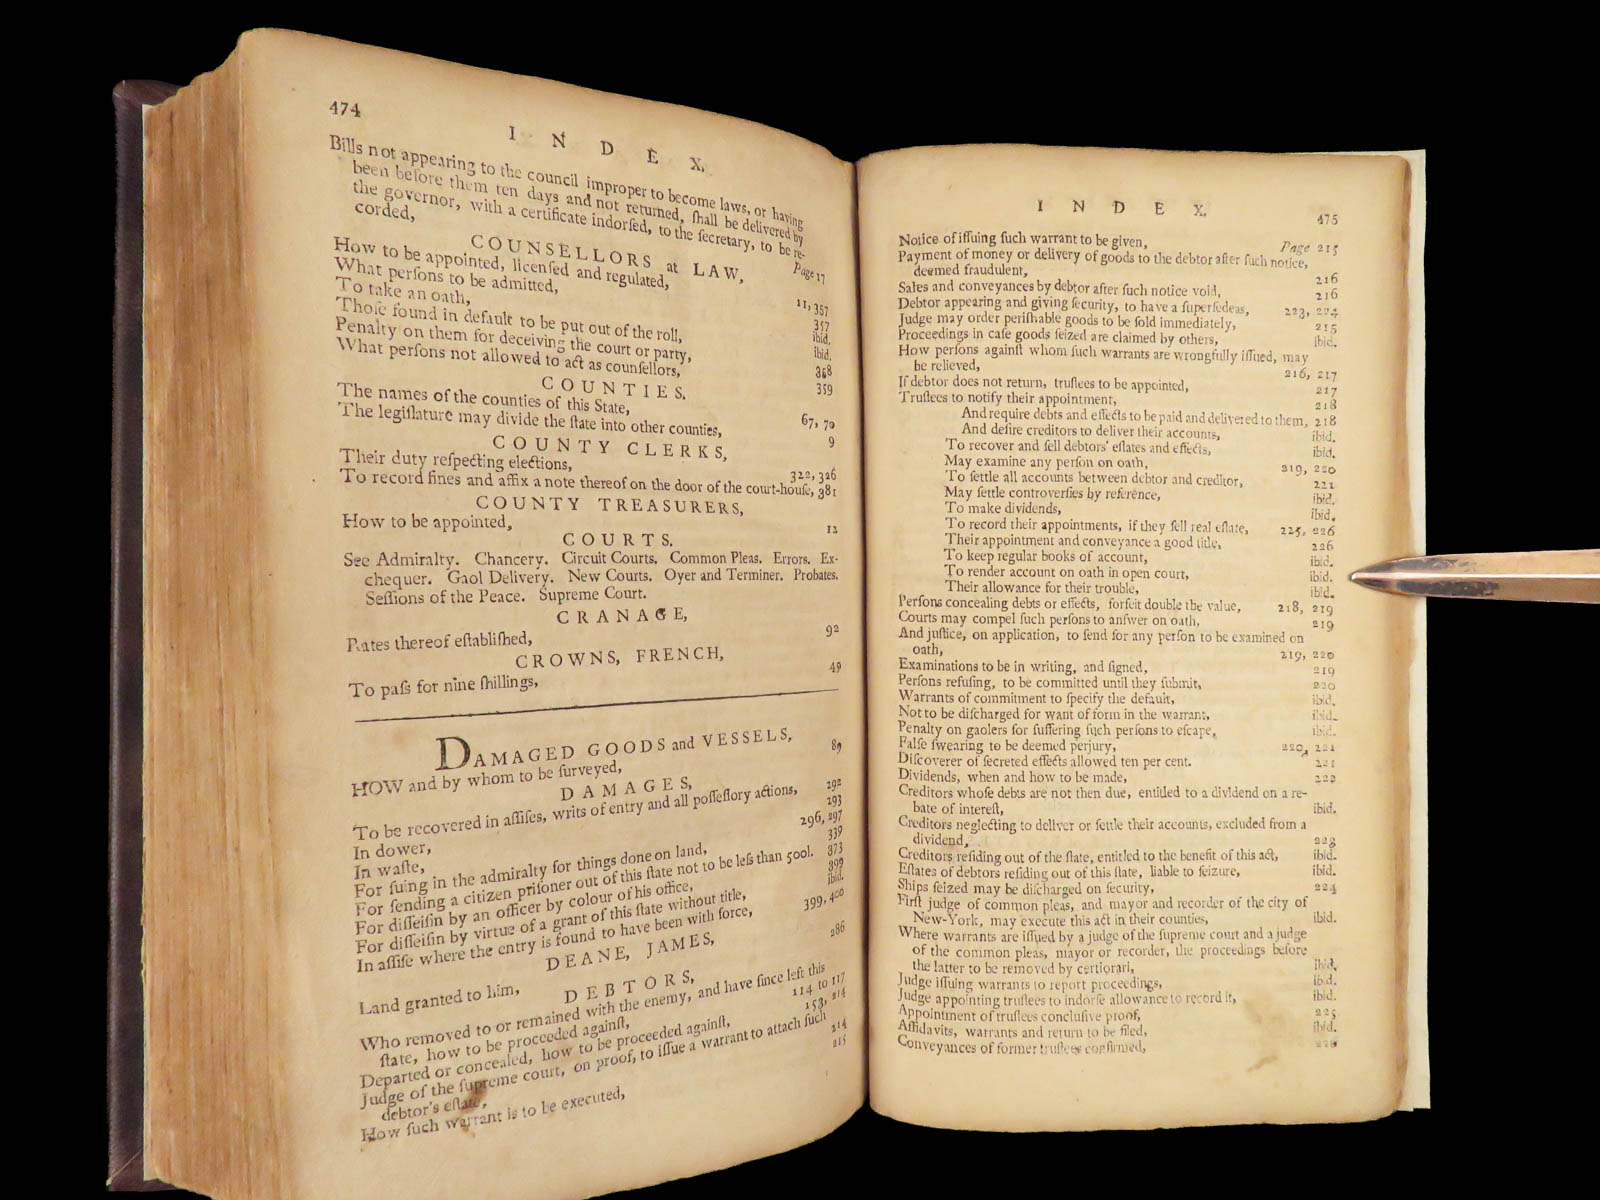 474
I N D E X.
Bills not appearing to the council improper to become laws, or having
been before them ten days and not returned, ſhall be delivered by
the governor, with a certificate indorſed, to the ſecretary, to be re-
corded, Page 17
COUNSELLORS at LAW,
How to be appointed, licenſed and regulated, 11, 357
What perſons to be admitted, 357
To take an oath, ibid.
Thoſe found in default to be put out of the roll, ibid.
Penalty on them for deceiving the court or party, 358
What perſons not allowed to act as counſellors, 359
COUNTIES.
The names of the counties of this State, 67, 70
The legiſlature may divide the ſtate into other counties, 9
COUNTY CLERKS,
Their duty reſpecting elections, 322, 326
To record fines and affix a note thereof on the door of the court-houſe, 381
COUNTY TREASURERS,
How to be appointed, 12
COURTS.
See Admiralty. Chancery. Circuit Courts. Common Pleas. Errors. Ex-
chequer. Gaol Delivery. New Courts. Oyer and Terminer. Probates.
Seſſions of the Peace. Supreme Court.
CRANAGE,
Rates thereof eſtabliſhed, 92
CROWNS, FRENCH,
To paſs for nine ſhillings, 49
DAMAGED GOODS and VESSELS,
HOW and by whom to be ſurveyed, 89
DAMAGES,
To be recovered in aſſiſes, writs of entry and all poſſeſſory actions, 292
In dower, 293
In waſte, 296, 297
For ſuing in the admiralty for things done on land, 339
For ſending a citizen priſoner out of this ſtate not to be leſs than 500l. 373
For diſſeiſin by an officer by colour of his office, 399
For diſſeiſin by virtue of a grant of this ſtate without title, ibid.
In aſſiſe where the entry is found to have been with force, 399, 400
DEANE, JAMES,
Land granted to him, 286
DEBTORS,
Who removed to or remained with the enemy, and have ſince left this
ſtate, how to be proceeded againſt, 114 to 117
Departed or concealed, how to be proceeded againſt, 153, 214
Judge of the ſupreme court, on proof, to iſſue a warrant to attach ſuch
debtor's eſtate, 214
How ſuch warrant is to be executed, 215
I N D E X. 475
Notice of iſſuing ſuch warrant to be given, Page 215
Payment of money or delivery of goods to the debtor after ſuch notice,
deemed fraudulent, 216
Sales and conveyances by debtor after ſuch notice void, 216
Debtor appearing and giving ſecurity, to have a ſuperſedeas, 223, 224
Judge may order periſhable goods to be ſold immediately, 215
Proceedings in caſe goods ſeized are claimed by others, ibid.
How perſons againſt whom ſuch warrants are wrongfully iſſued, may
be relieved, 216, 217
If debtor does not return, truſtees to be appointed, 217
Truſtees to notify their appointment, 218
And require debts and effects to be paid and delivered to them, 218
And deſire creditors to deliver their accounts, ibid.
To recover and ſell debtors' eſtates and effects, ibid.
May examine any perſon on oath, 219, 220
To ſettle all accounts between debtor and creditor, 221
May ſettle controverſies by reference, ibid.
To make dividends, ibid.
To record their appointments, if they ſell real eſtate, 225, 226
Their appointment and conveyance a good title, 226
To keep regular books of account, ibid.
To render account on oath in open court, ibid.
Their allowance for their trouble, ibid.
Perſons concealing debts or effects, forfeit double the value, 218, 219
Courts may compel ſuch perſons to anſwer on oath, 219
And juſtice, on application, to ſend for any perſon to be examined on
oath, 219, 220
Examinations to be in writing, and ſigned, 219
Perſons refuſing, to be committed until they ſubmit, 220
Warrants of commitment to ſpecify the default, ibid.
Not to be diſcharged for want of form in the warrant, ibid.
Penalty on gaolers for ſuffering ſuch perſons to eſcape, ibid.
Falſe ſwearing to be deemed perjury, 220, 221
Diſcoverer of ſecreted effects allowed ten per cent. 221
Dividends, when and how to be made, 222
Creditors whoſe debts are not then due, entitled to a dividend on a re-
bate of intereſt, ibid.
Creditors neglecting to deliver or ſettle their accounts, excluded from a
dividend, 223
Creditors reſiding out of the ſtate, entitled to the benefit of this act, ibid.
Eſtates of debtors reſiding out of this ſtate, liable to ſeizure, ibid.
Ships ſeized may be diſcharged on ſecurity, 224
Firſt judge of common pleas, and mayor and recorder of the city of
New-York, may execute this act in their counties, ibid.
Where warrants are iſſued by a judge of the ſupreme court and a judge
of the common pleas, mayor or recorder, the proceedings before
the latter to be removed by certiorari, ibid.
Judge iſſuing warrants to report proceedings, ibid.
Judge appointing truſtees to indorſe allowance to record it, ibid.
Appointment of truſtees concluſive proof, 225
Affidavits, warrants and return to be filed, ibid.
Conveyances of former truſtees confirmed,